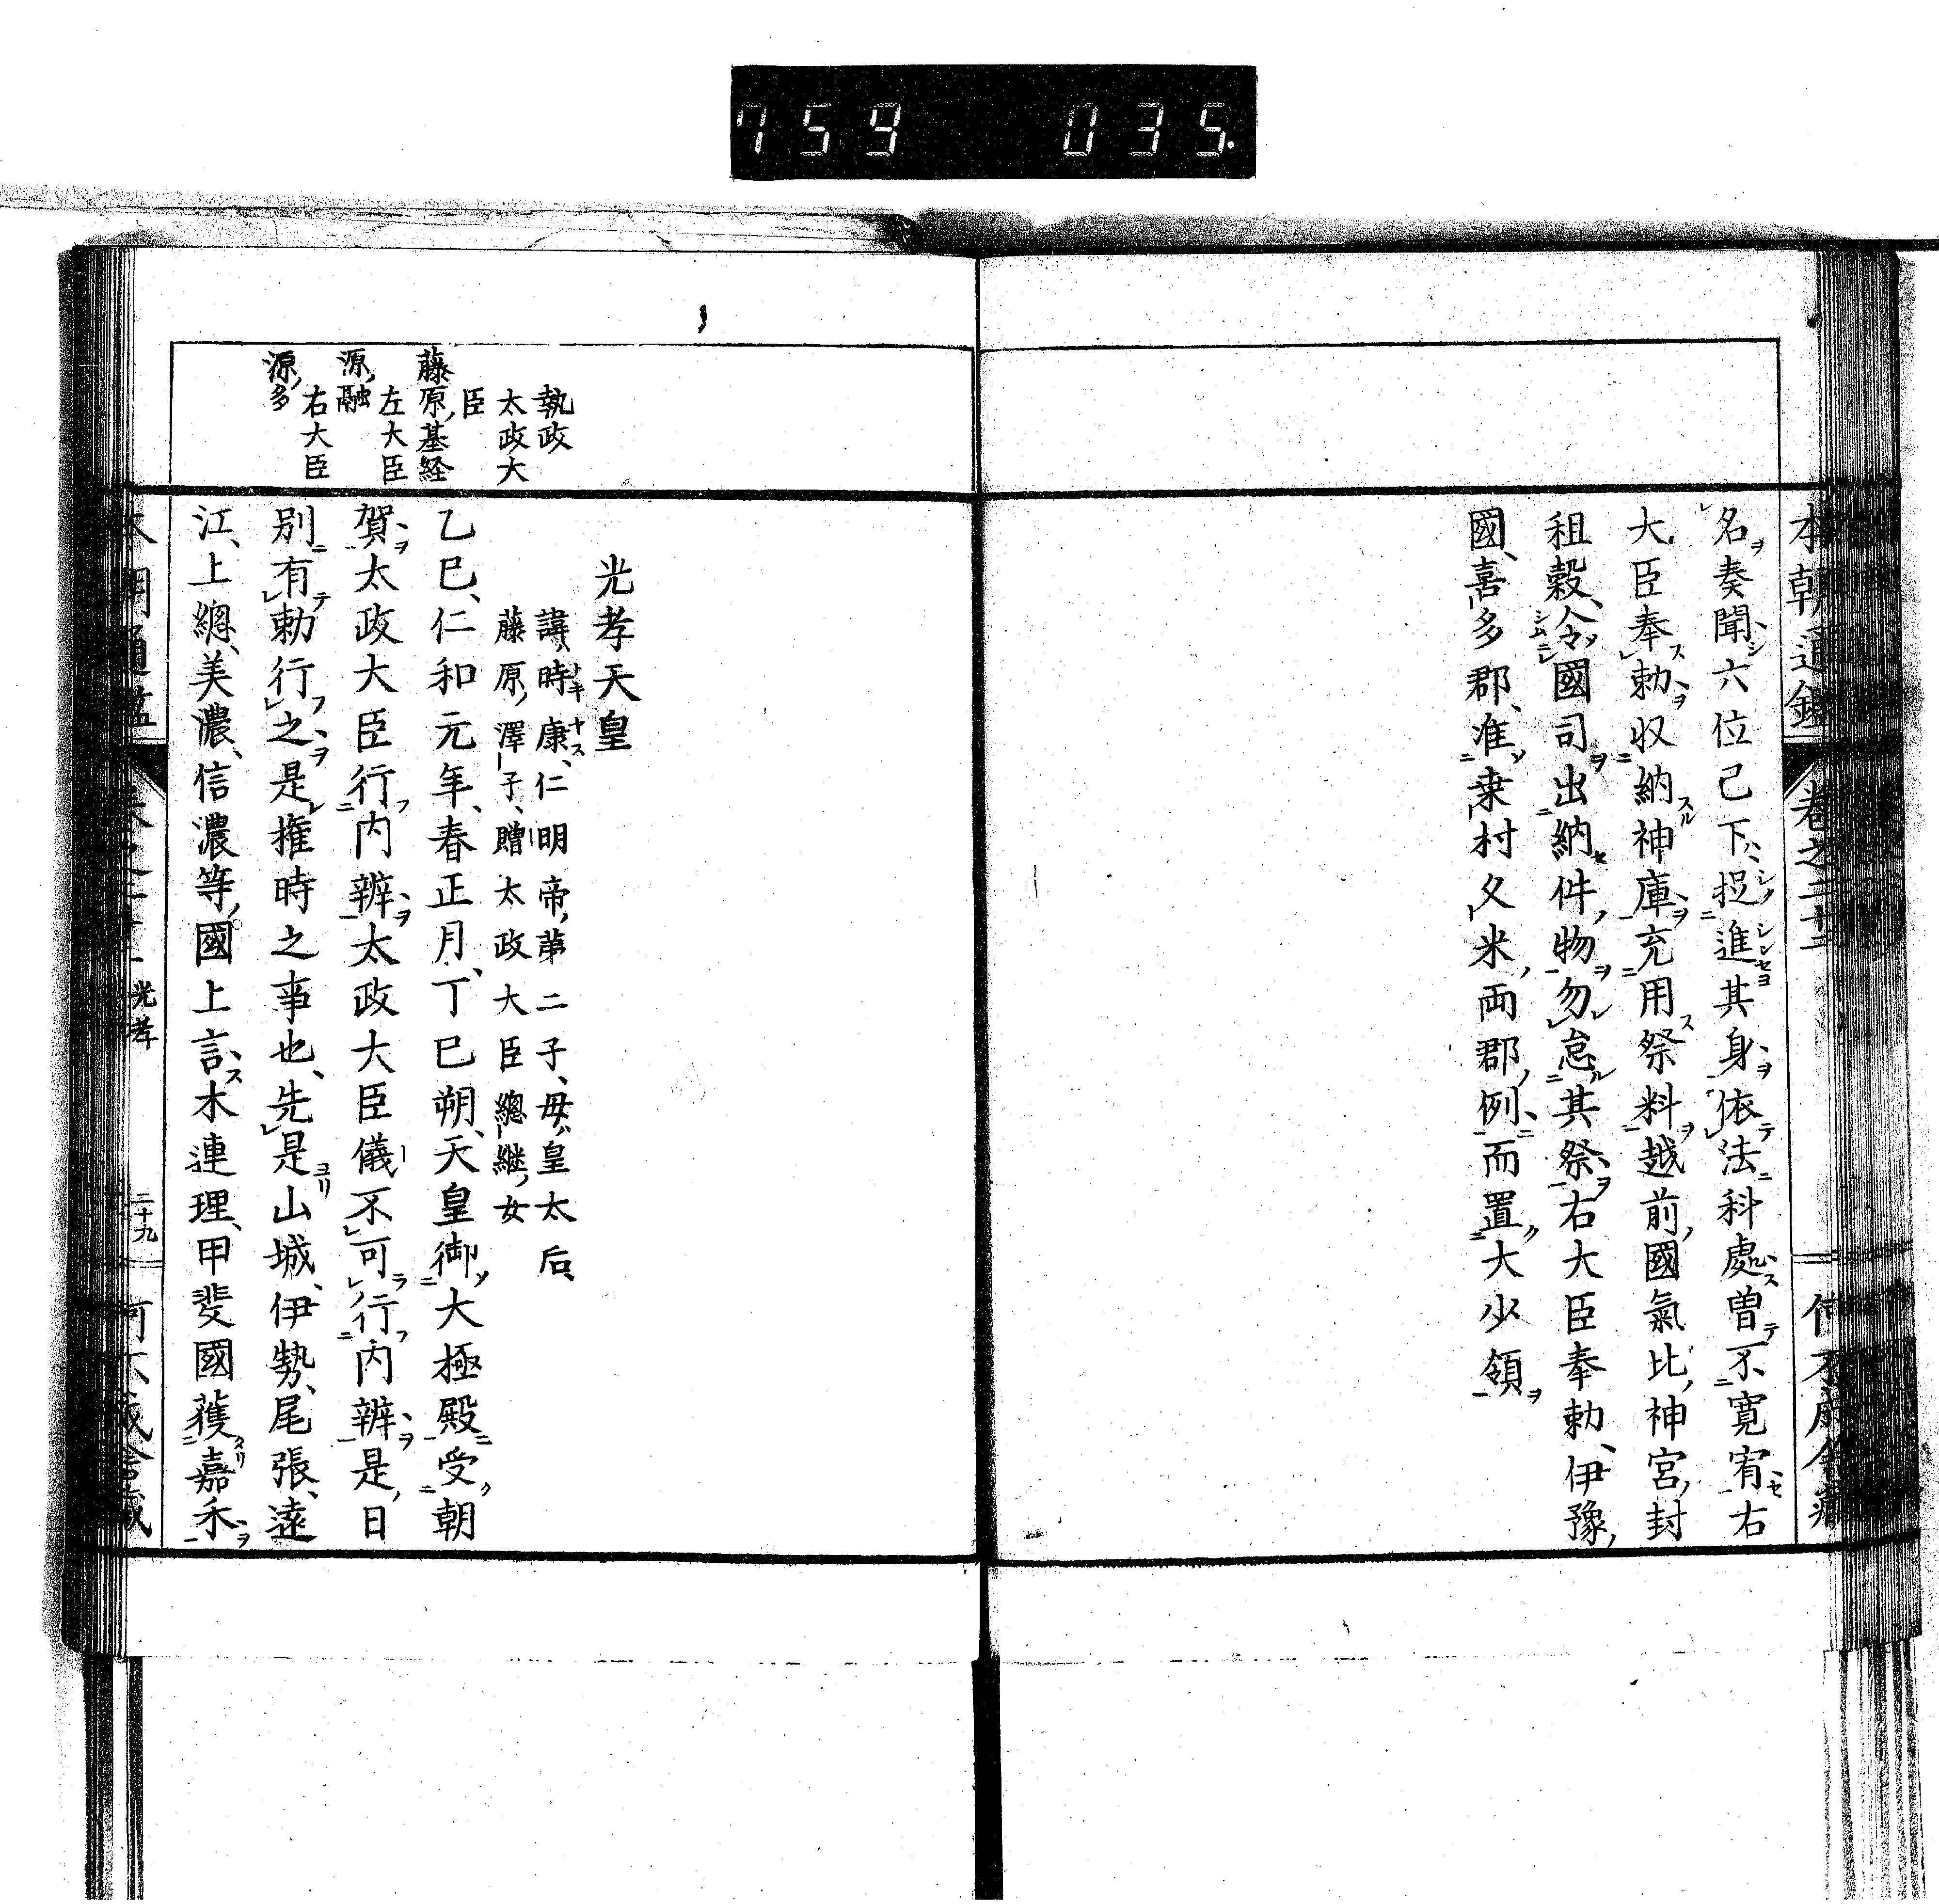 759 035.
本朝通鑑 卷之二十二
名奏聞六位已下捉進其身依法科處曽不寛宥右
大臣奉勅収納神庫充用祭料越前國氣比神宮封
租穀令國司出納件物勿怠其祭右大臣奉勅伊豫
國喜多郡准桒村久米両郡例而置大少領
光孝天皇
諱時康仁明帝第二子母皇太后
藤原澤子贈太政大臣總継女
執政
太政大
臣
藤原基経
左大臣
源融
右大臣
源多
乙巳仁和元年春正月丁巳朔天皇御大極殿受朝
賀太政大臣行内辨太政大臣儀不可行内辨是日
別有勅行之是権時之事也先是山城伊勢尾張遠
江上總美濃信濃等國上言木連理甲斐國獲嘉禾
光孝
二十九